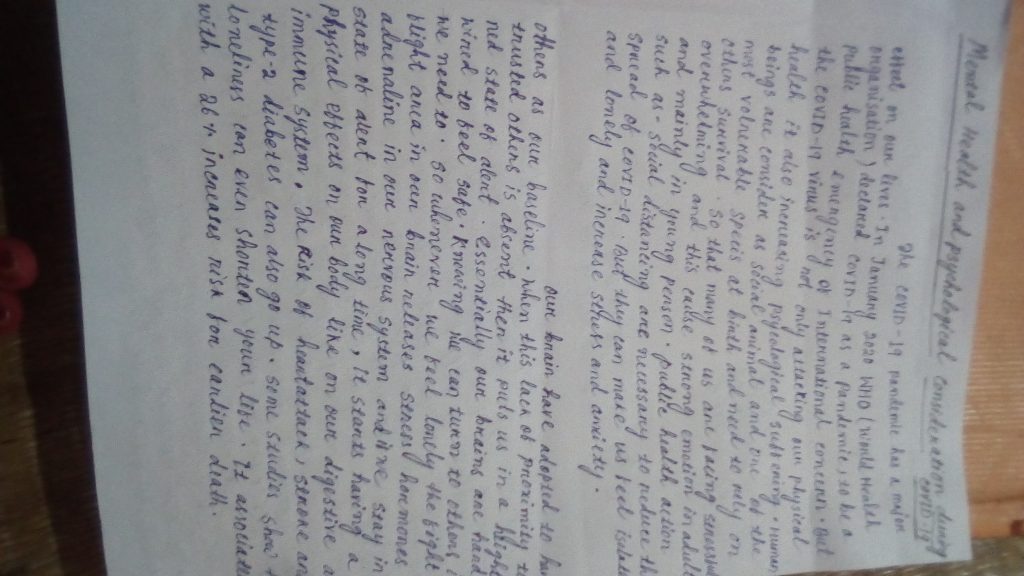 Mental Health and psychological consideration during
COVID-19
The COVID-19 pandemic has a major
effect on our lives. In January 2020 WHO (World Health
organisation) declared covid-19 as a pandemic, to be a
public health emergency of International concern. But
the COVID-19 virus is not only attacking our physical
health it also increasing psycological suffering. human
beings are consider as social animal and one of the
most vulnerable specis at birth and need to rely on
others survival. So that many of us are facing
overwhelming and this cause strong emotion in adult
and mainly in young person. public health action
such as- social distancing are necessary to reduce the
spread of COVID-19 but they can make us feel
and lonely and increase stress and anxiety.
our brain have adopted to
others as our baseline. When this lack of proximity to
trusted others is absent then it puts us in a
ned state of alert. essentially our brains are hard
wired to feel safe. Knowing we can turn to others
we need to. so whenever we feel lonely the fight
flight area in our brain releases stress hormones
adrenaline in our nervous system and we stay in
state of alert for a long time, it starts having a
physical effects on our body like on our digestive
immune system. The risk of heartattack, stroke
type-2 diabetes can also go up. some studies
loneliness can even shorten your live. It
with a 26% increases risk for earlier death.